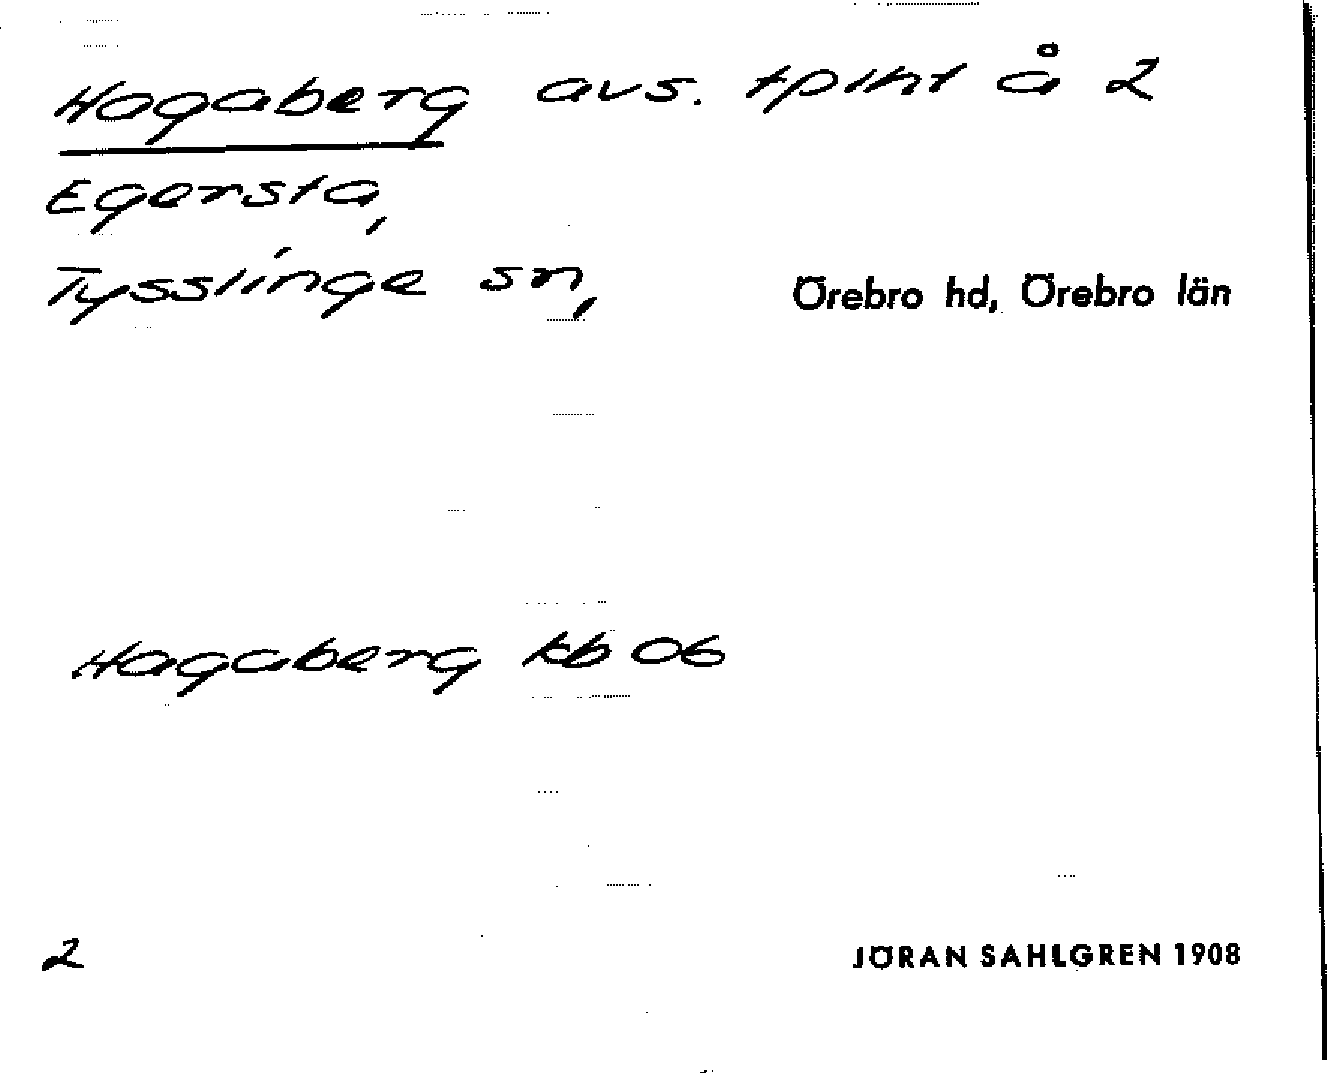 Hagaberg avs. tplht å 2
Egersta,
Tysslinge sn, Örebro hd, Örebro län
Hagaberg kb 06
2 JÖRAN SAHLGREN 1908